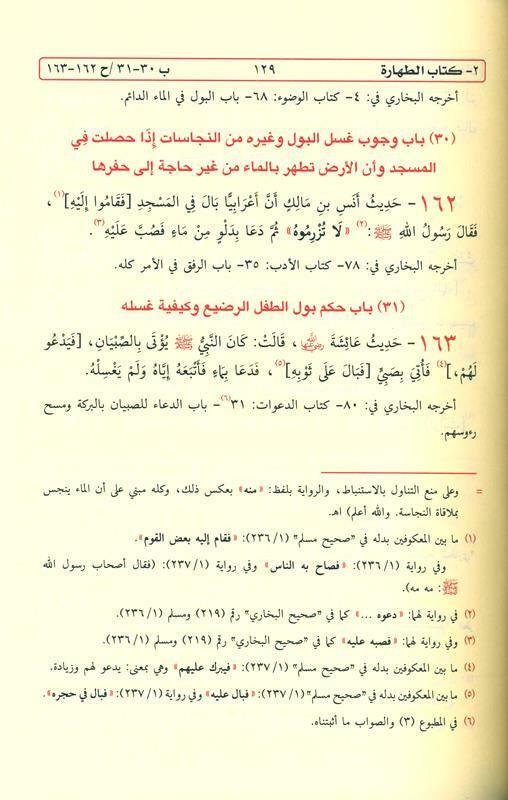 ٢- كتاب الطهارة ١٢٩ ب ٣٠-٣١ /ح ١٦٢-١٦٣
أخرجه البخاري في: ٤- كتاب الوضوء: ٦٨- باب البول في الماء الدائم.
(٣٠) باب وجوب غسل البول وغيره من النجاسات إذا حصلت في
المسجد وأن الأرض تطهر بالماء من غير حاجة إلى حفرها
١٦٢ - حَدِيثُ أَنَسِ بنِ مَالِكٍ أَنَّ أَعْرَابِيًّا بَالَ فِي المَسْجِدِ [فَقَامُوا إِلَيْهِ](١)،
فَقَالَ رَسُولُ اللهِ ﷺ:(٢) «لَا تُزْرِمُوهُ» ثُمَّ دَعَا بِدَلْوٍ مِنْ مَاءٍ فَصُبَّ عَلَيْهِ(٣).
أخرجه البخاري في: ٧٨- كتاب الأدب: ٣٥- باب الرفق في الأمر كله.
(٣١) باب حكم بول الطفل الرضيع وكيفية غسله
١٦٣ - حَدِيثُ عَائِشَةَ رضي الله عنها، قَالَتْ: كَانَ النَّبِيُّ ﷺ يُؤْتَى بِالصِّبْيَانِ، [فَيَدْعُو
لَهُمْ،](٤) فَأُتِيَ بِصَبِيٍّ [فَبَالَ عَلَى ثَوْبِهِ](٥)، فَدَعَا بِمَاءٍ فَأَتْبَعَهُ إِيَّاهُ وَلَمْ يَغْسِلْهُ.
أخرجه البخاري في: ٨٠- كتاب الدعوات: ٣١(٦)- باب الدعاء للصبيان بالبركة ومسح
رءوسهم.
= وعلى منع التناول بالاستنباط، والرواية بلفظ: «منه» بعكس ذلك، وكله مبني على أن الماء ينجس
بملاقاة النجاسة. والله أعلم) اهـ.
(١) ما بين المعكوفين بدله في "صحيح مسلم" (٢٣٦/١): «فقام إليه بعض القوم».
وفي رواية (٢٣٦/١): «فصاح به الناس» وفي رواية (٢٣٧/١): (فقال أصحاب رسول الله
ﷺ: مه مه).
(٢) في رواية لهما: «دعوه ...» كما في "صحيح البخاري" رقم (٢١٩) ومسلم (٢٣٦/١).
(٣) وفي رواية لهما: «فصبه عليه» كما في "صحيح البخاري" رقم (٢١٩) ومسلم (٢٣٦/١).
(٤) ما بين المعكوفين بدله في "صحيح مسلم" (٢٣٧/١): «فيبرك عليهم» وهي بمعنى: يدعو لهم وزيادة.
(٥) ما بين المعكوفين بدله في "صحيح مسلم" (٢٣٧/١): «فبال عليه» وفي رواية (٢٣٧/١): «فبال في حجره».
(٦) في المطبوع (٣) والصواب ما أثبتناه.